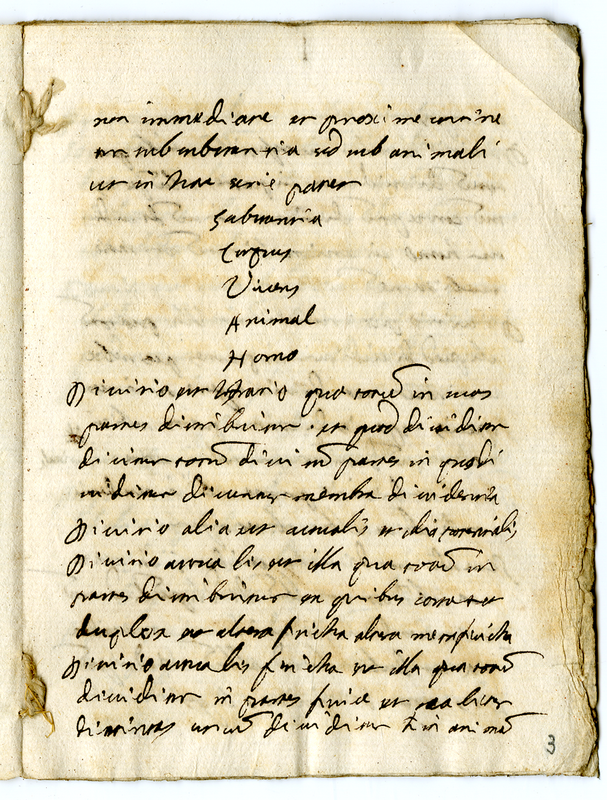 non immediate et proxime contine
tur sub substantia sed sub animali
ut in hac serie patet
Substantia
Corpus
Vivens
Animal
Homo
Divisio est oratio qua totum in suas
partes distribuitur et quod dividitur
dicitur totum divisum partes in quas di
viditur dicuntur membra dividentia
Divisio alia est actualis et alia potentialis
Divisio actualis est illa qua totum in
partes distribuitur ex quibus constat et
duplex est altera phisica altera metaphisica
Divisio actualis phisica est illa qua totum
dividitur in partes phisice et realiter
distinctas dividitur in
3